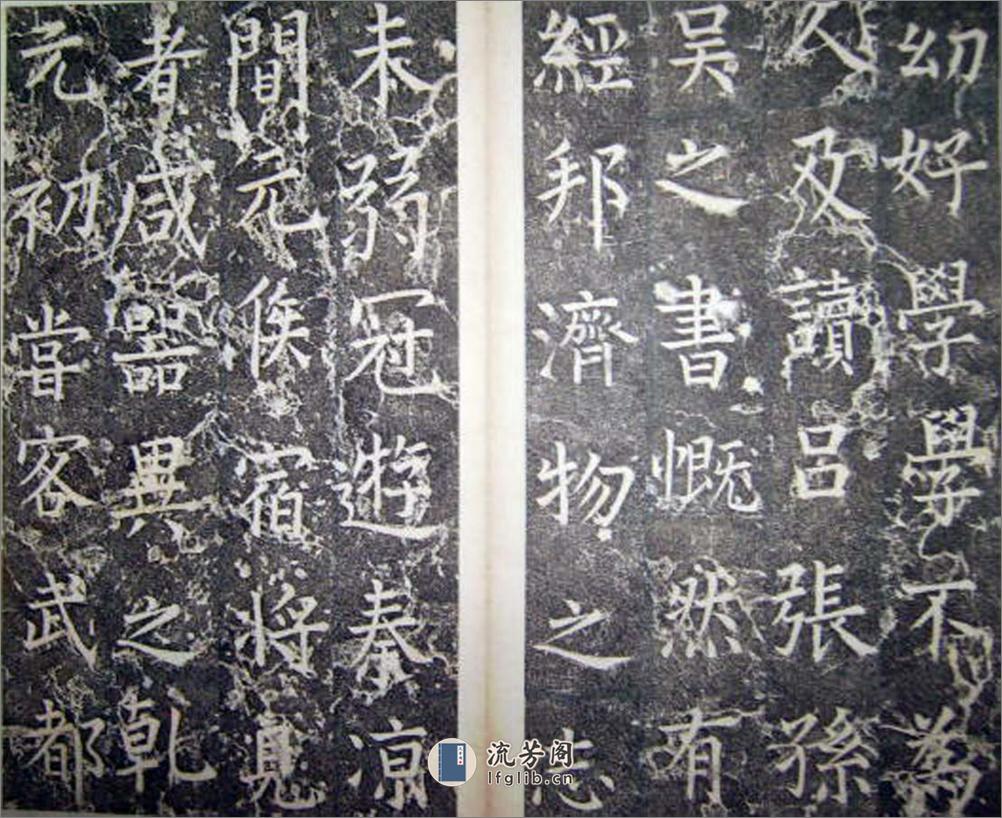 幼好學學不為
人及讀呂張孫
吳之書慨然有
經邦濟物之志
未弱冠遊秦涼
間元侯宿將見
者咸器異之乾
元初嘗客武都
流芳阁
lfglib.cn